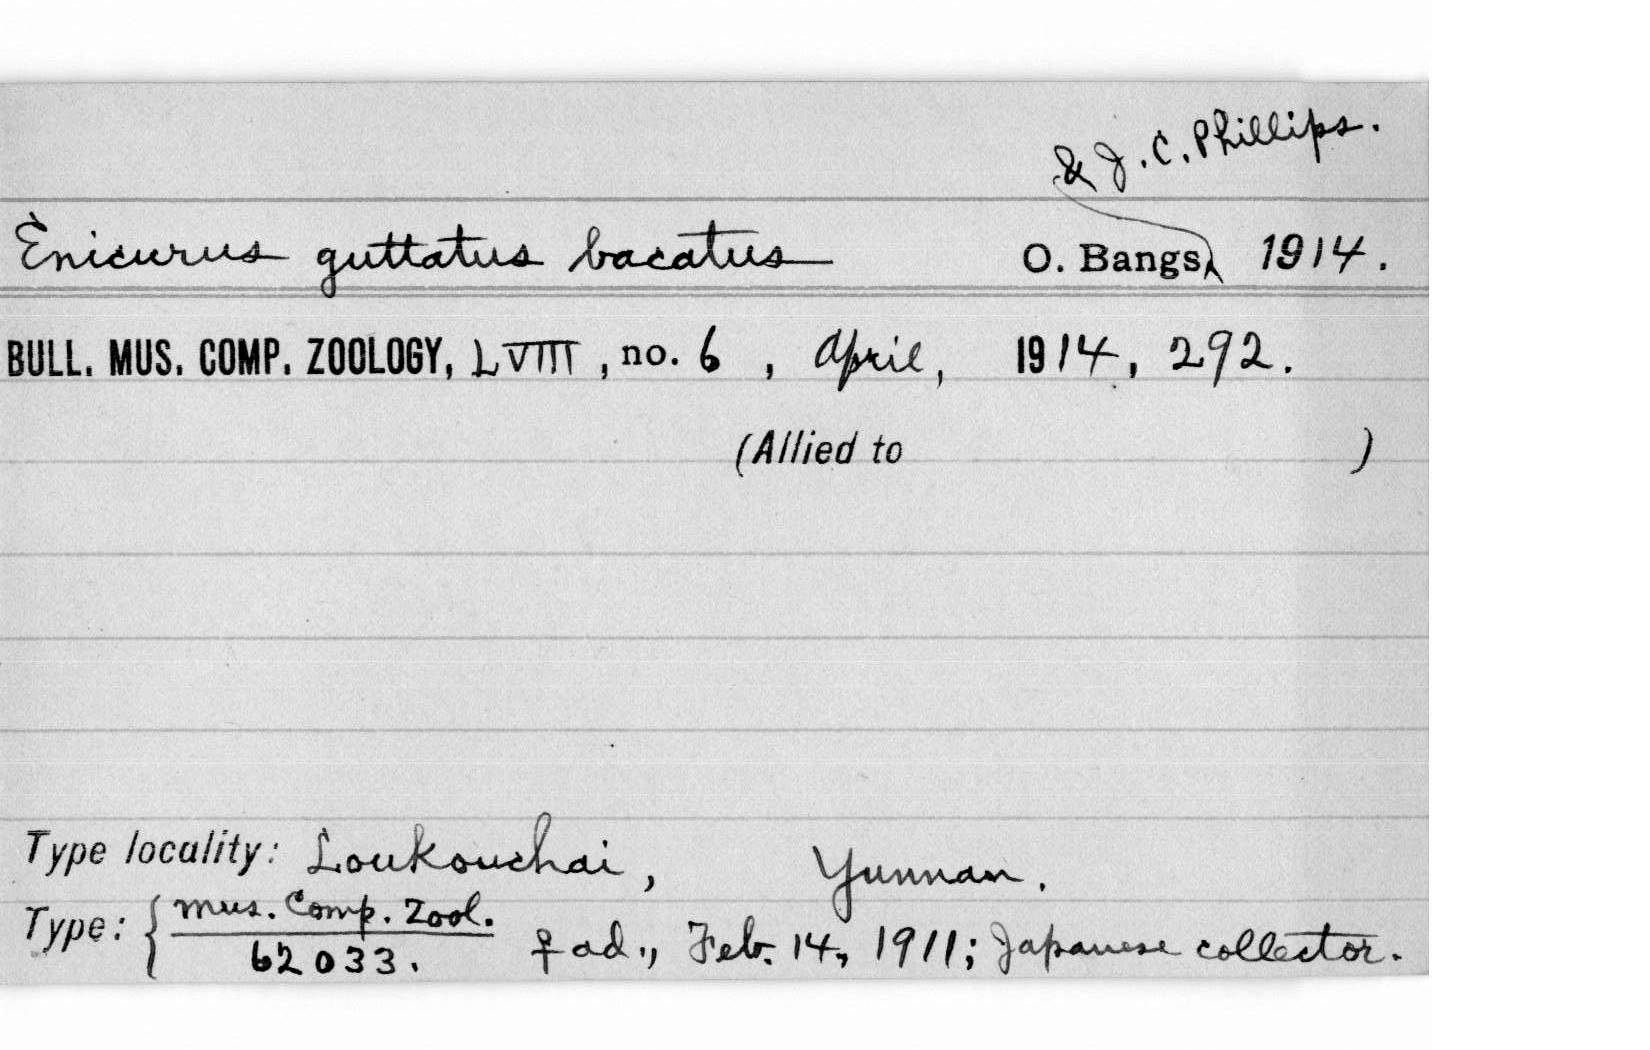 & J. C. Phillips.
Enicurus guttatus bacatus O. Bangs 1914.
BULL. MUS. COMP. ZOOLOGY, LVIII, no. 6, April, 1914, 292.
(Allied to )
Type locality: Loukouchai, Yunnan.
Type: { Mus. Comp. Zool.
62033. ♀ ad., Feb. 14, 1911; Japanese collector.